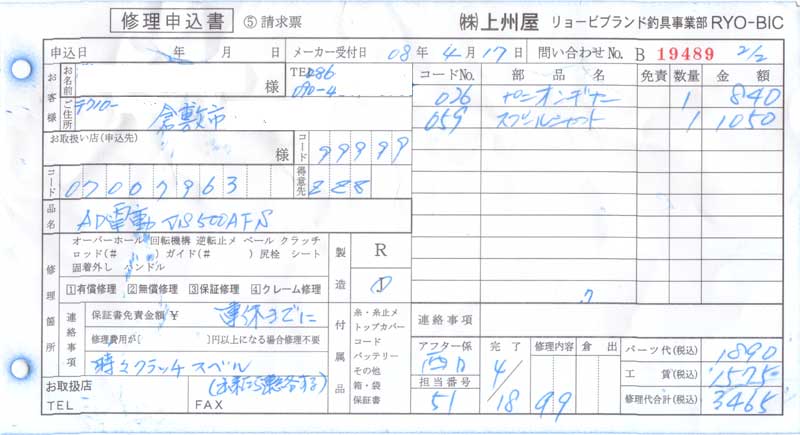 修理申込書 ⑤請求票 ㈱上州屋 リョービブランド釣具事業部 RYO-BIC
申込日 年 月 日 メーカー受付日 08年4月17日 問い合わせNo. B 19489 2/2
お客様 お名前 様 TEL 086
090-4
ご住所 倉敷市
お取扱い店(申込先) 様 コード 99999
コード 07007963 得意先 228
品名 AD電動
コードNo. 部品名 免責 数量 金額
026 ピニオンギヤー 1 840
059 スプールシャフト 1 1050
修理箇所
オーバーホール 回転機構 逆転止メ ベール クラッチ
ロッド(# ) ガイド(# ) 尻栓 シート
固着外し ハンドル
1有償修理 2無償修理 3保証修理 4クレーム修理
製造 R
J
連絡事項
保証書免責金額 ¥ 連休までに
修理費用が[ ]円以上になる場合修理不要
時々クラッチスベル
付属品
糸・糸止メ
トップカバー
コード
バッテリー
その他
箱・袋
保証書
お取扱店
TEL FAX
連絡事項
アフター係 担当番号 51
完了 4/18
修理内容 99
倉出
パーツ代(税込) 1890
工賃(税込) 1575
修理代合計(税込) 3465